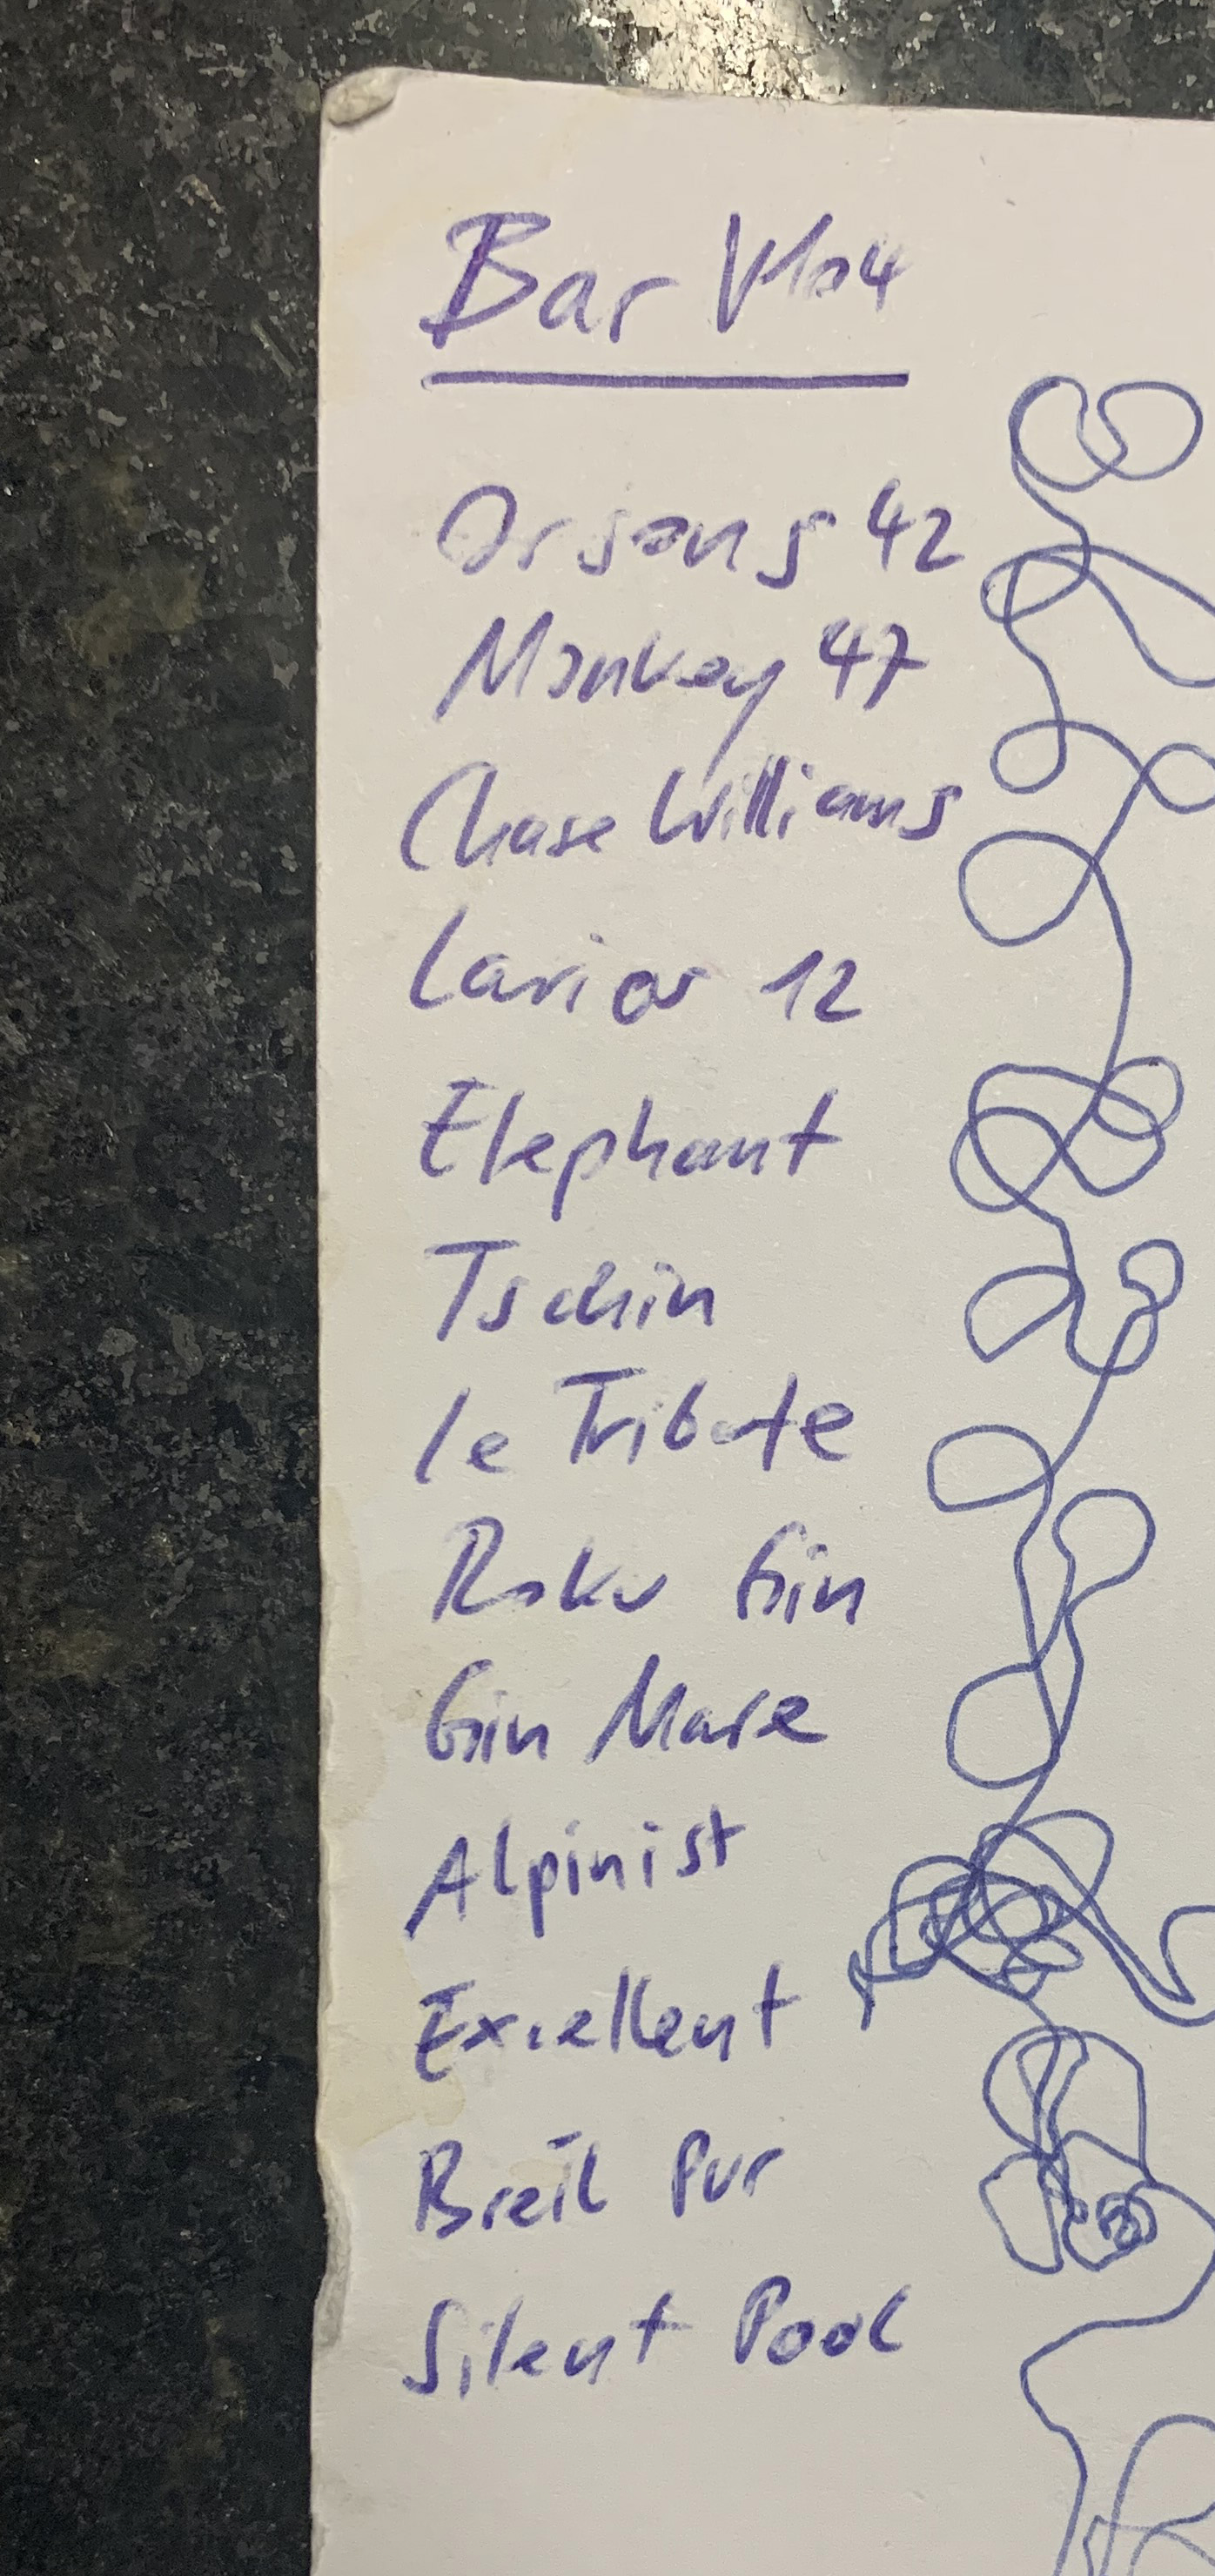 Bar
Orsons 42
Monkey 47
Chase Williams
Larios 12
Elephant
Tschin
le Tribute
Roku Gin
Gin Mare
Alpinist
Excellent
Breil Pur
Silent Pool